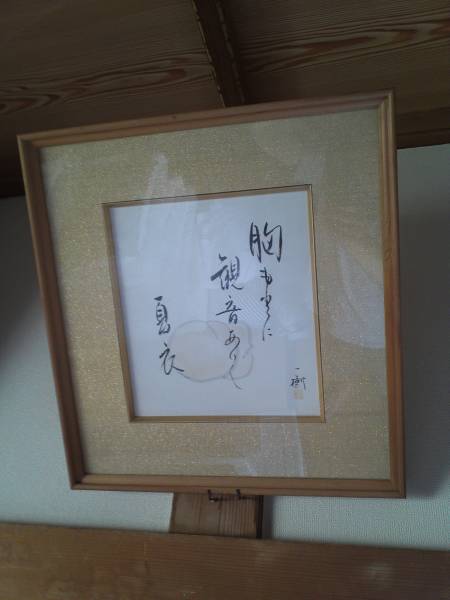 胸もとに
観音ありて
夏衣